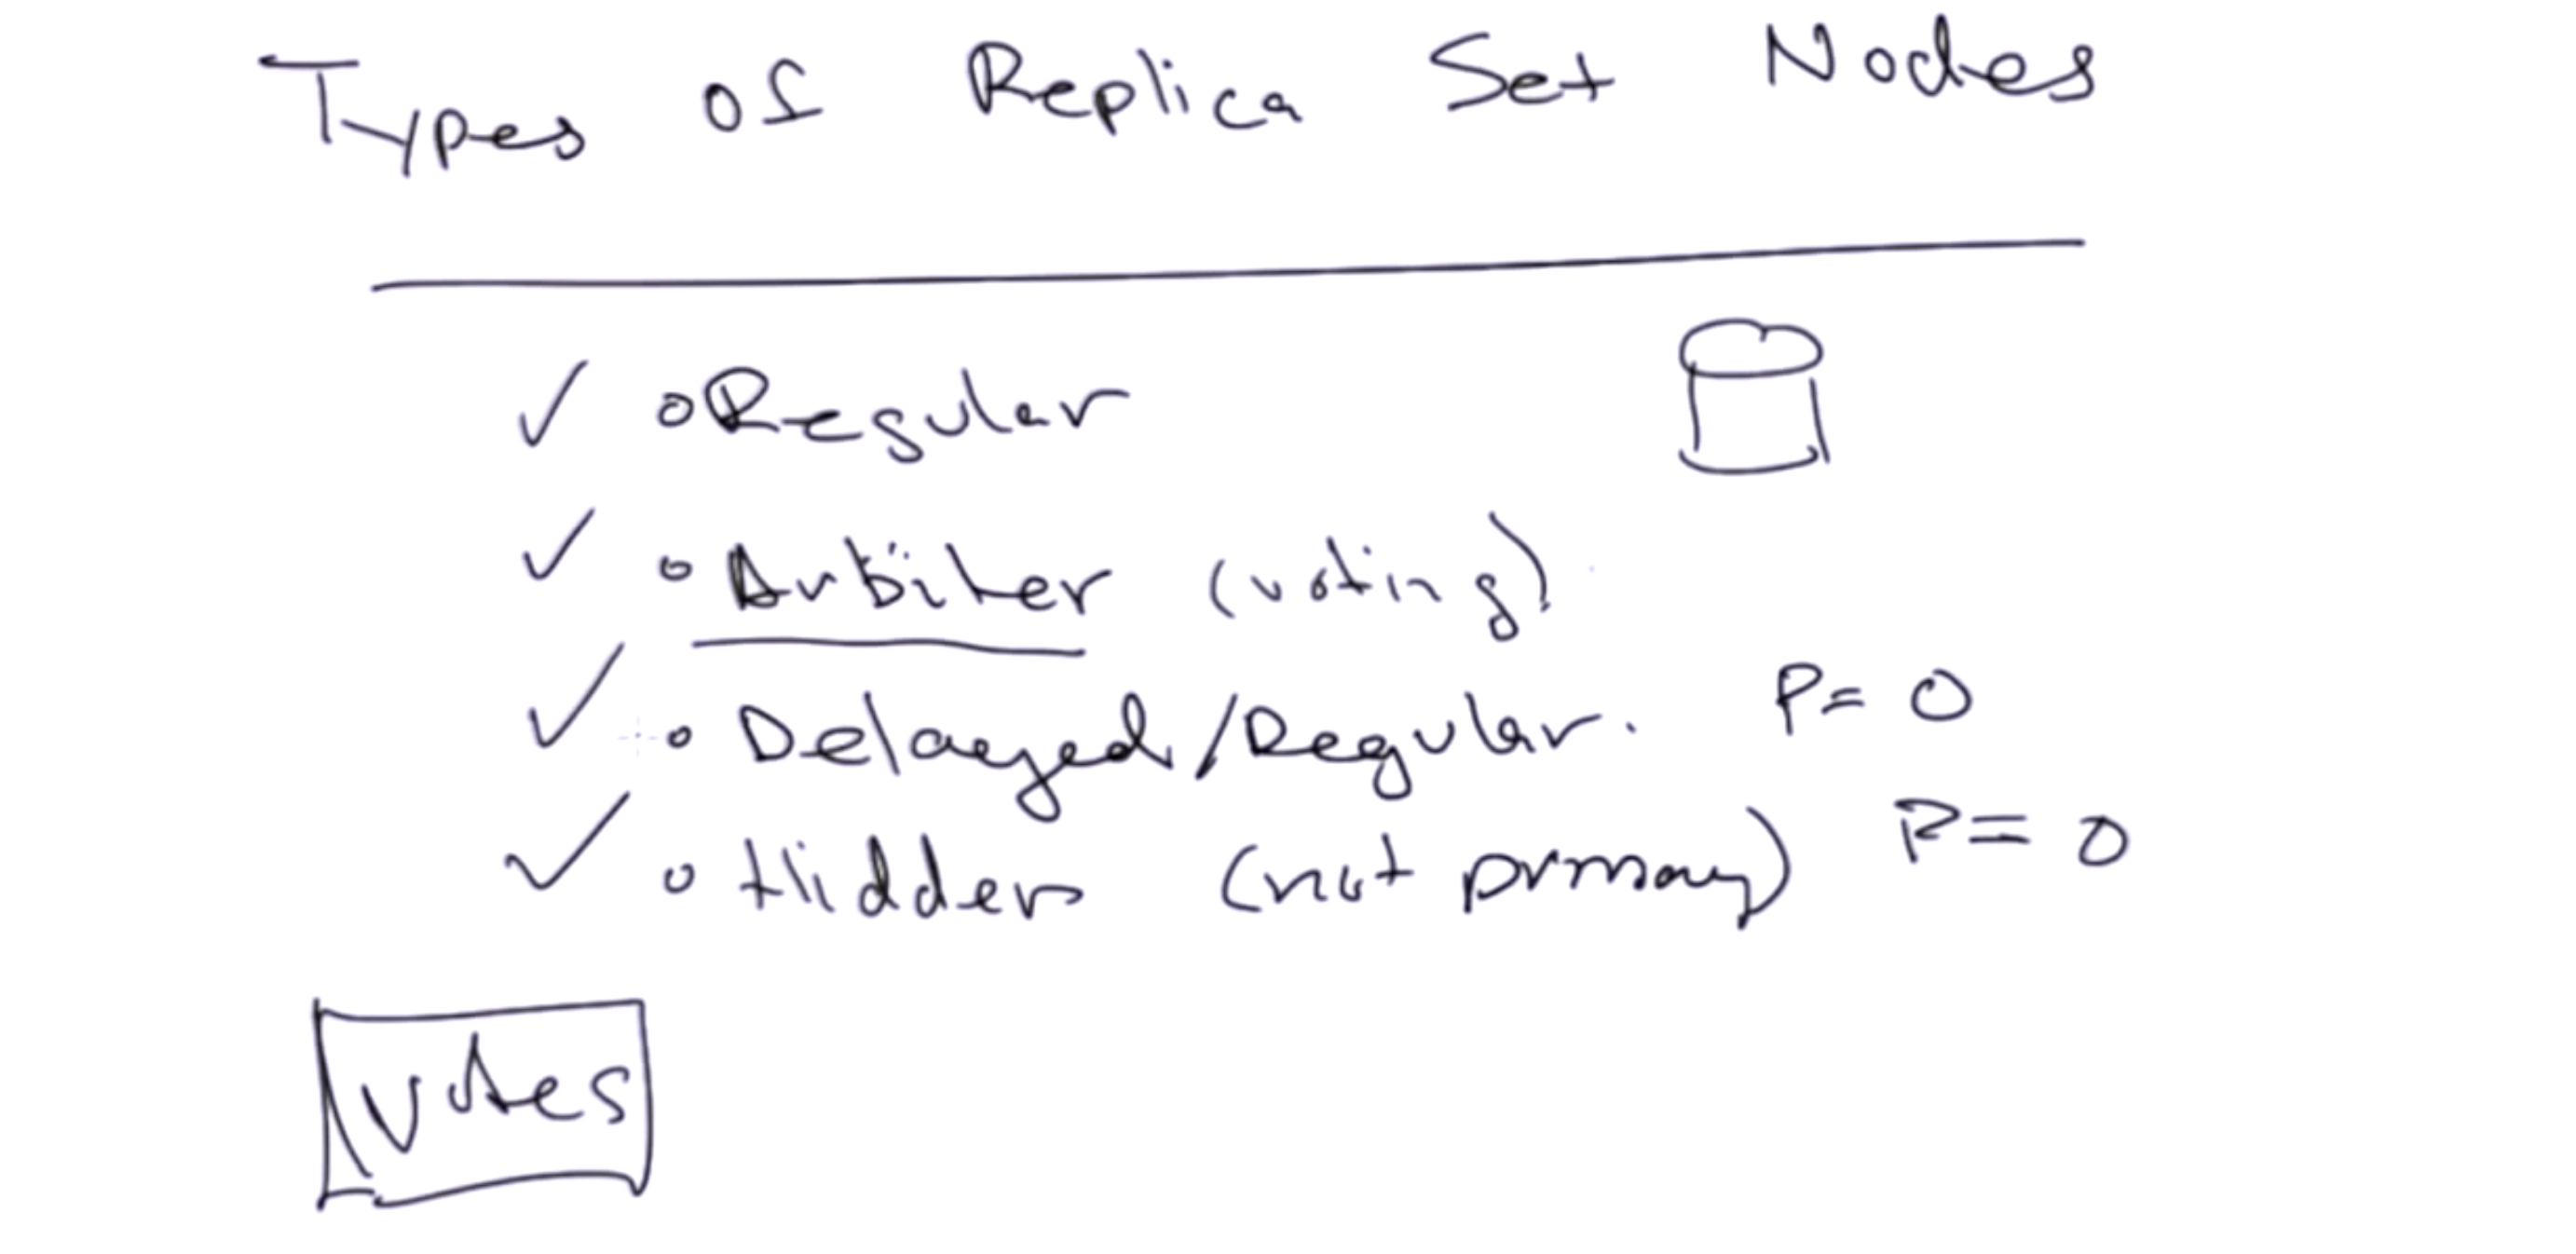 Types of Replica Set Nodes
Regular
Arbiter (voting)
Delayed/Regular. P=0
Hidden (not primary) P=0
Votes